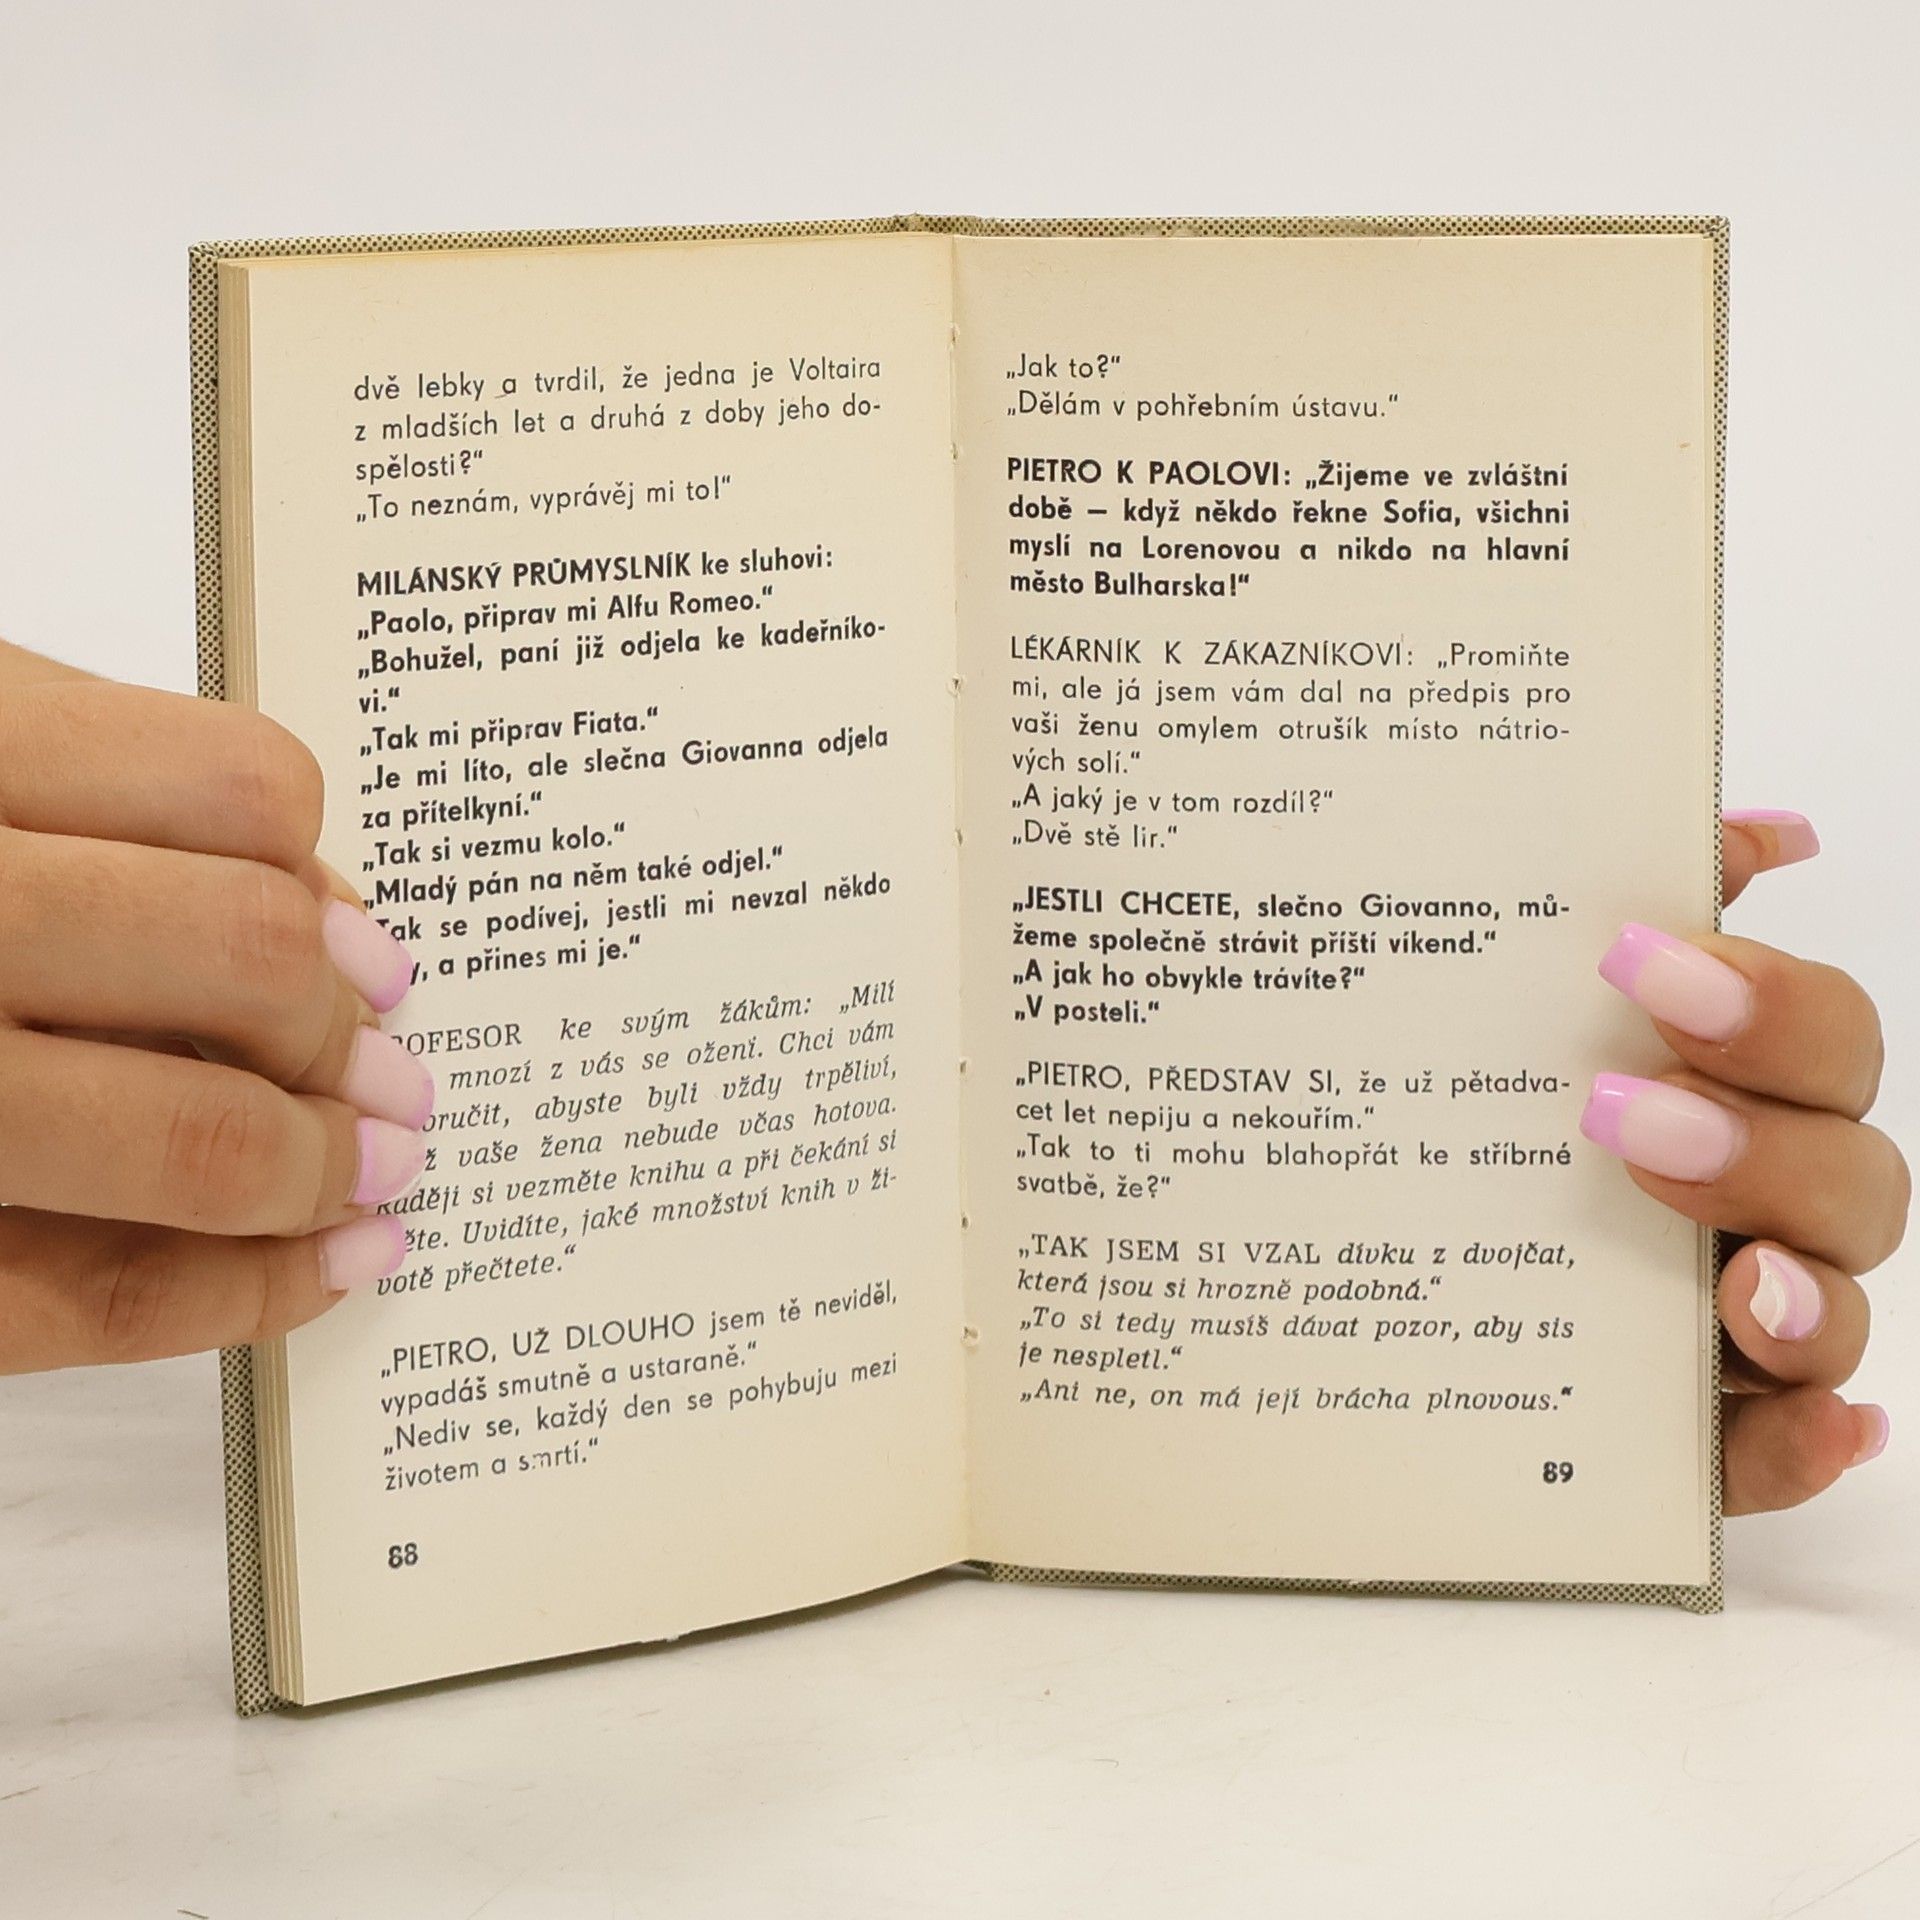 dvě lebky a tvrdil, že jedna je Voltaira
z mladších let a druhá z doby jeho do-
spělosti?“
„To neznám, vyprávěj mi to!“
MILÁNSKÝ PRŮMYSLNÍK ke sluhovi:
„Paolo, připrav mi Alfu Romeo.“
„Bohužel, paní již odjela ke kadeřníko-
vi.“
„Tak mi připrav Fiata.“
„Je mi líto, ale slečna Giovanna odjela
za přítelkyní.“
„Tak si vezmu kolo.“
„Mladý pán na něm také odjel.“
se podívej, jestli mi nevzal někdo
a přines mi je.“
ke svým žákům: „Milí
mnozí z vás se ožení. Chci vám
abyste byli vždy trpěliví,
vaše žena nebude včas hotova.
si vezměte knihu a při čekání si
Uvidíte, jaké množství knih v ži-
votě přečtete.“
„PIETRO, UŽ DLOUHO jsem tě neviděl,
vypadáš smutně a ustaraně.“
„Nediv se, každý den se pohybuju mezi
životem a smrtí.“
88
„Jak to?“
„Dělám v pohřebním ústavu.“
PIETRO K PAOLOVI: „Žijeme ve zvláštní
době — když někdo řekne Sofia, všichni
myslí na Lorenovou a nikdo na hlavní
město Bulharska!“
LÉKÁRNÍK K ZÁKAZNÍKOVI: „Promiňte
mi, ale já jsem vám dal na předpis pro
vaši ženu omylem otrušík místo nátrio-
vých solí.“
„A jaký je v tom rozdíl?“
„Dvě stě lir.“
„JESTLI CHCETE, slečno Giovanno, mů-
žeme společně strávit příští víkend.“
„A jak ho obvykle trávíte?“
„V posteli.“
„PIETRO, PŘEDSTAV SI, že už pětadva-
cet let nepiju a nekouřím.“
„Tak to ti mohu blahopřát ke stříbrné
svatbě, že?“
„TAK JSEM SI VZAL dívku z dvojčat,
která jsou si hrozně podobná.“
„To si tedy musíš dávat pozor, aby sis
je nespletl.“
„Ani ne, on má její brácha plnovous.“
89